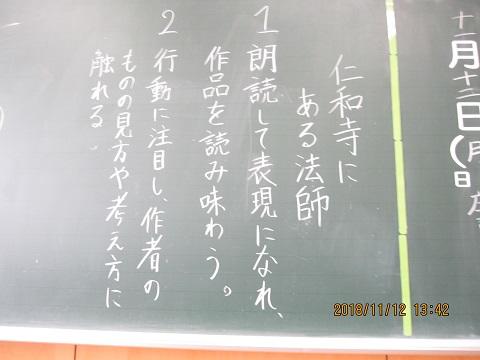 十一月十二日(月
日
仁和寺に
ある法師
1 朗読して表現になれ、
作品を読み味わう。
2 行動に注目し、作者の
ものの見方や考え方に
触れる。
2018/11/12 13:42